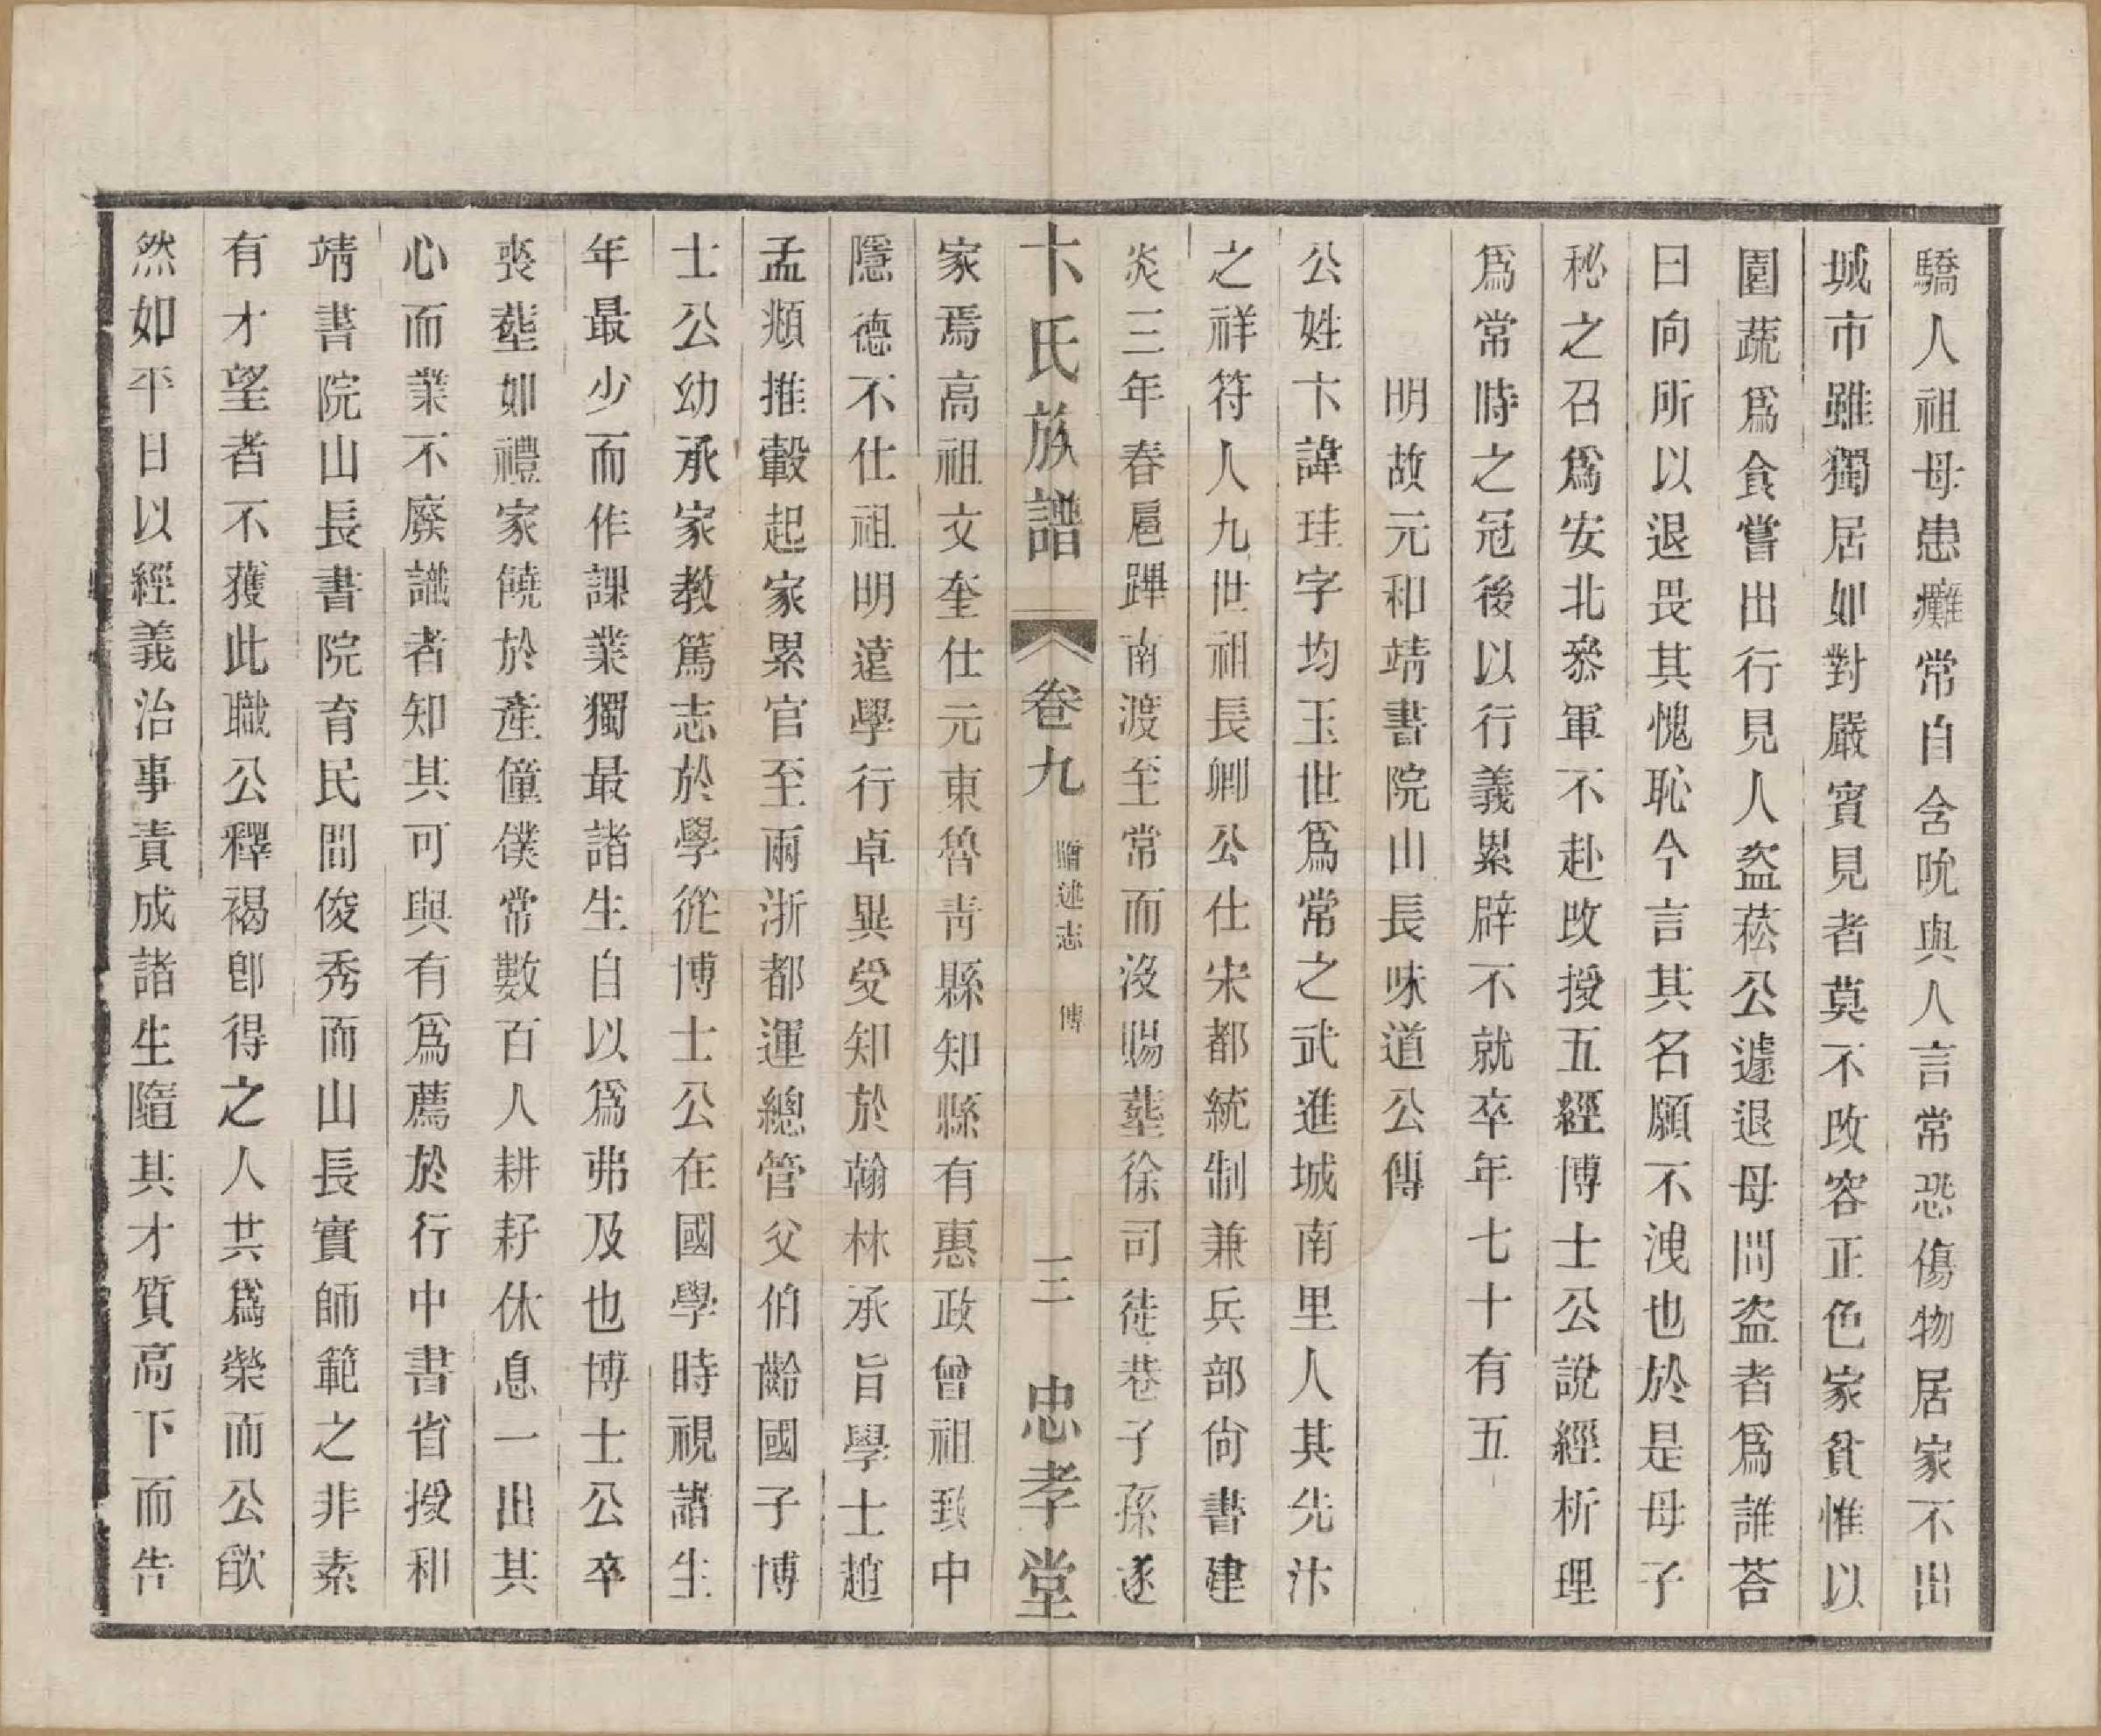 驕人祖母患癱常自含吮與人言常恐傷物居家不出
城市雖獨居如對嚴賓見者莫不改容正色家貧惟以
園蔬爲食嘗出行見人盜菘公遽退母問盜者爲誰荅
曰向所以退畏其愧恥今言其名願不洩也於是母子
秘之召爲安北叅軍不赴改授五經博士公說經析理
爲常時之冠後以行義累辟不就卒年七十有五
明故元和靖書院山長味道公傳
公姓卞諱珪字均玉世爲常之武進城南里人其先汴
之祥符人九世祖長卿公仕宋都統制兼兵部尙書建
炎三年春扈蹕南渡至常而沒賜塟徐司徒巷子孫遂
卞氏族譜 卷九 贈述志 傳 三 忠孝堂
家焉高祖文奎仕元東魯靑縣知縣有惠政曾祖致中
隱德不仕祖明遠學行卓異受知於翰林承旨學士趙
孟頫推轂起家累官至兩浙都運總管父伯齡國子博
士公幼承家教篤志於學從博士公在國學時視諸生
年最少而作課業獨最諸生自以爲弗及也博士公卒
喪塟如禮家饒於產僮僕常數百人耕耔休息一出其
心而業不廢識者知其可與有爲薦於行中書省授和
靖書院山長書院育民間俊秀而山長實師範之非素
有才望者不獲此職公釋褐卽得之人共爲榮而公欿
然如平日以經義治事責成諸生隨其才質高下而告